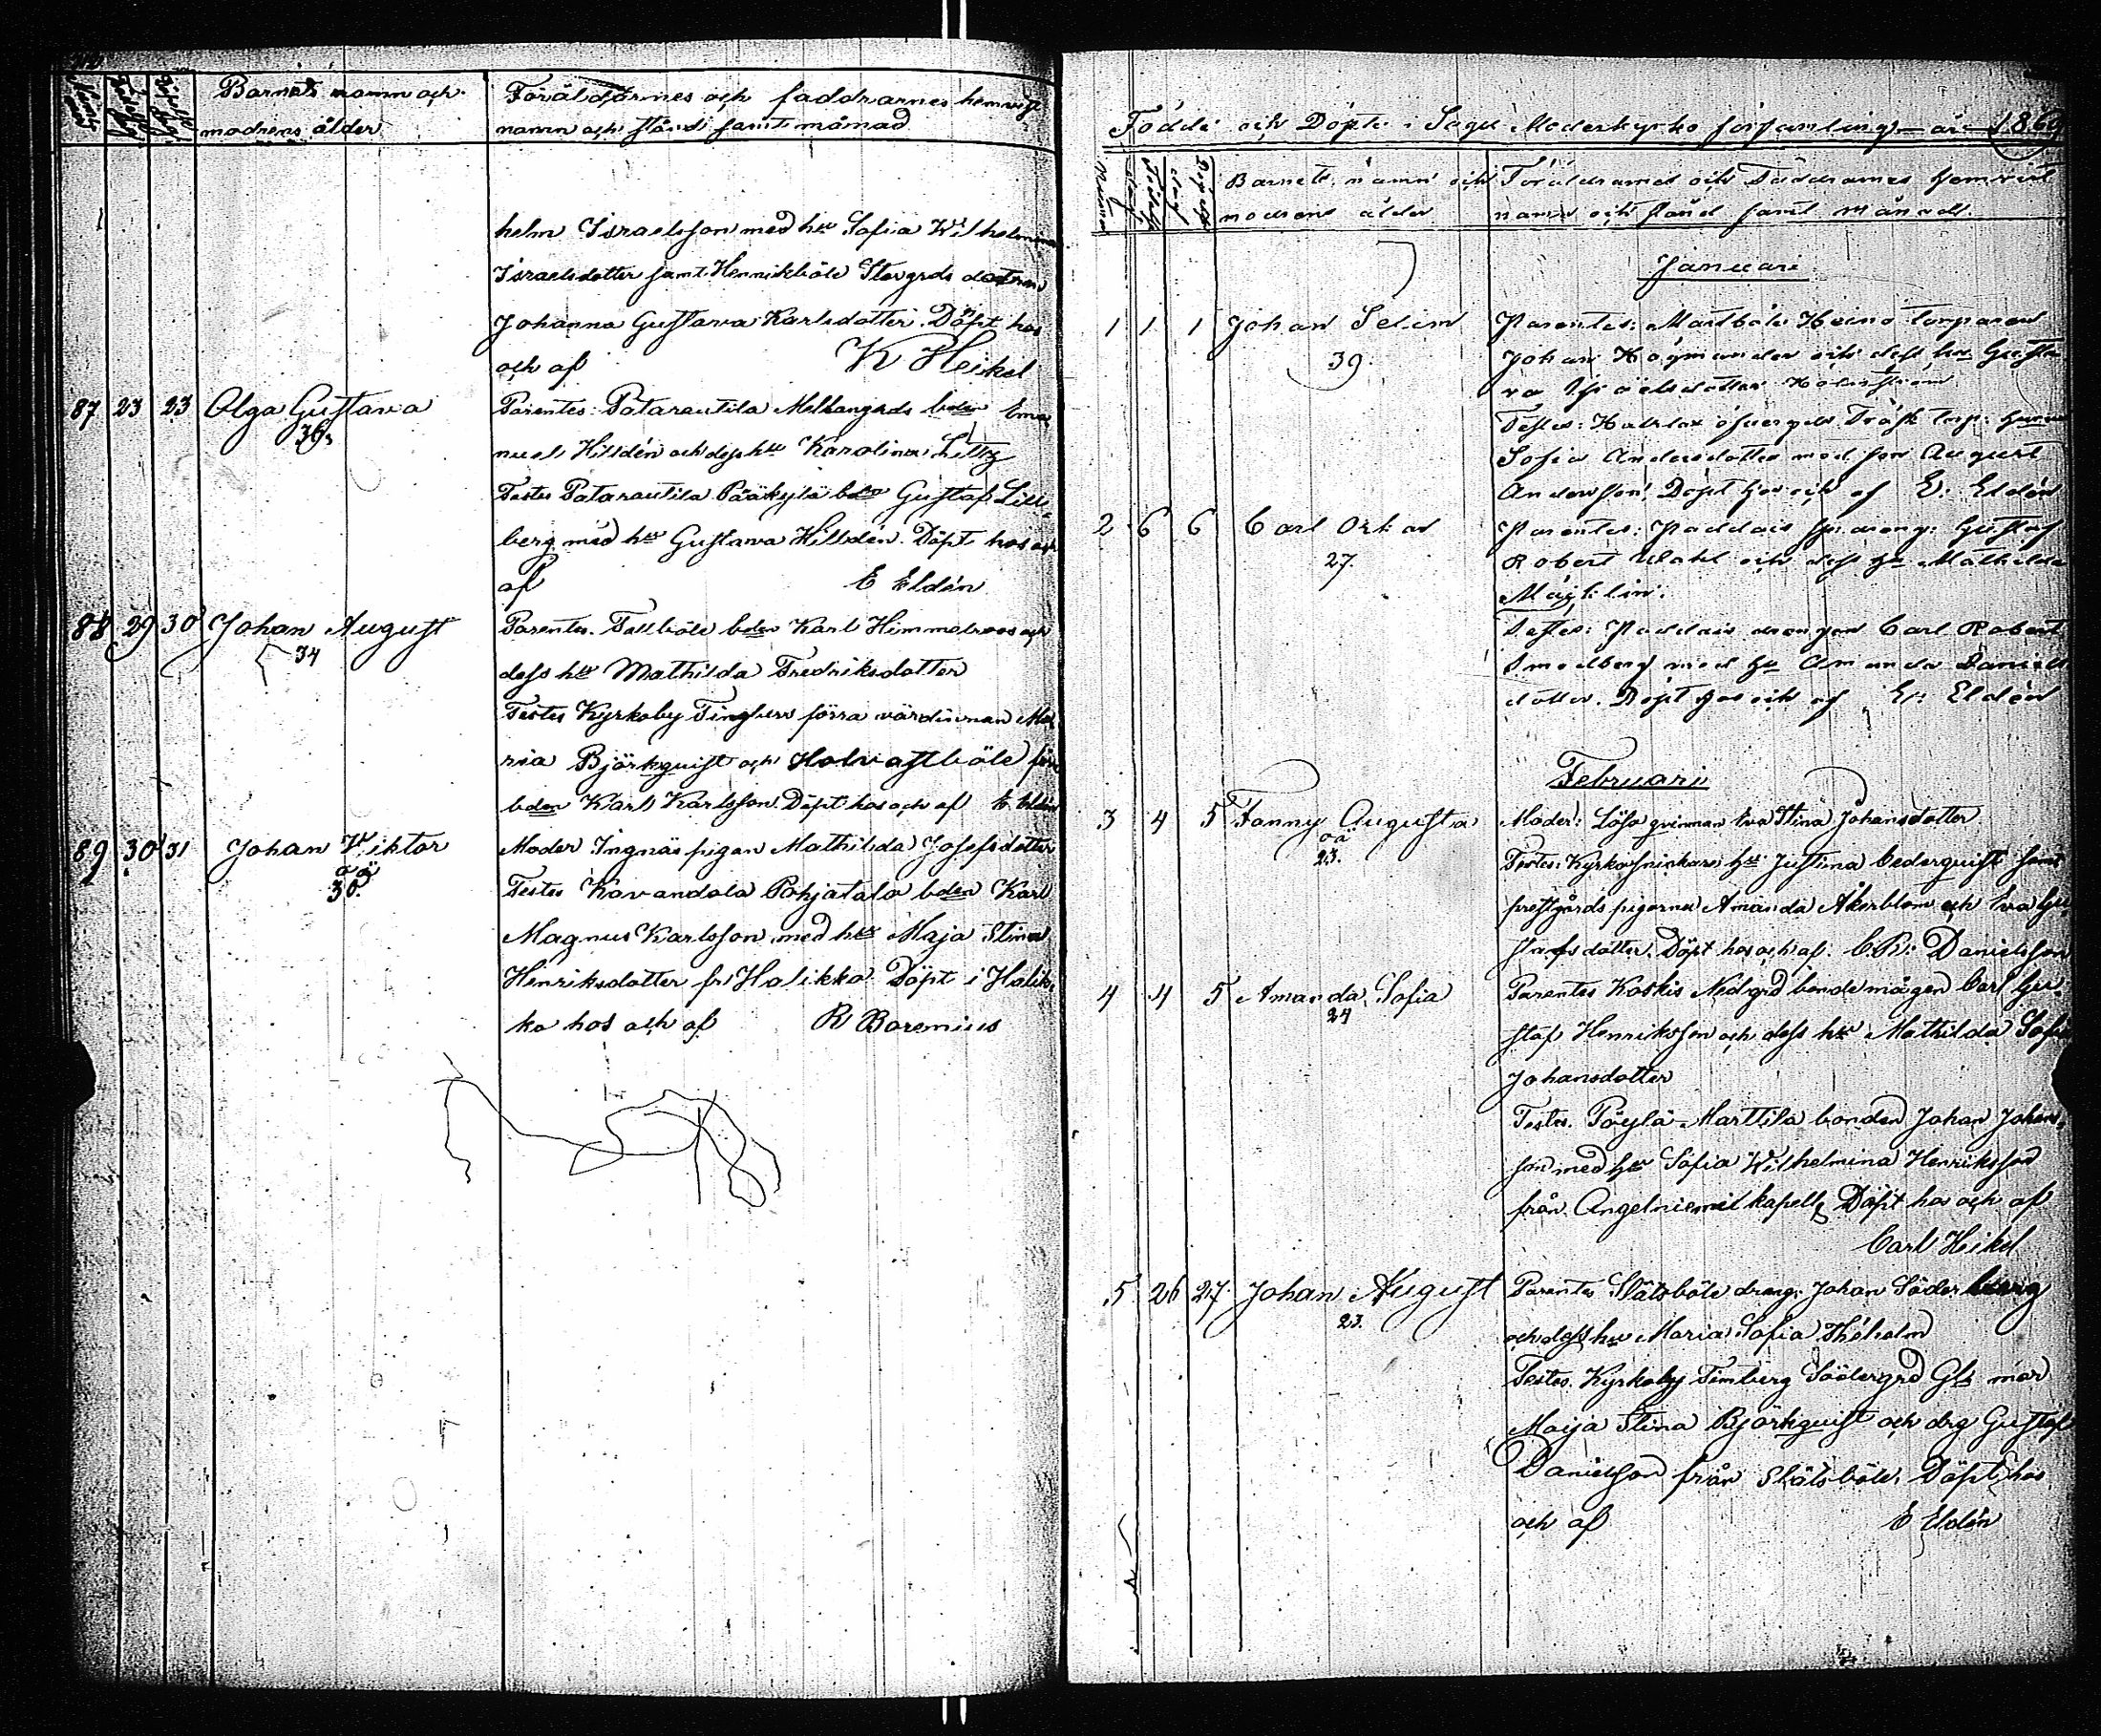 Barnets namn och
modrens ålder
Föräldrarnes och faddrarnes hemvist
namn och stånd samt månad
helm Israelsson med hu Sofia Wilhelmina
Israelsdotter samt Henriksböle Storgrds dottren
Johanna Gustava Karlsdotter. Döpt hos
och af K Heikel
87 23 23 Olga Gustava
36
Parentes: Patarautila Mellangrds bden Ema
nuel Hilldén och dess hu Karolina
Testes Patarautila Pääkylä bdn Gustaf Lill
berg med hu Gustava Hilldén. Döpt hos och
af E Eldén
88 29 30 Johan August
34
Parentes. Fallböle bden Karl Himmelroos och
dess hu Mathilda Fredriksdotter
Testes Kyrkoby förra värdinnan Ma
ria Björkquist och
bden Karl Karlsson. Döpt hos och af E. Eldén
89 30 31 Johan Viktor
oä
36.
Moder Ingnäs pigan Mathilda Josefsdotter
Testes Kavandola Pohjatalo bden Karl
Magnus Karlsson med hu Maja Stina
Henriksdotter fr Halikko. Döpt i Halik
ko hos och af R Boremius
Födde och Döpte i Sagu Moderkyrko församling år 1869
Barnets namn och
modrens ålder
Föräldrarnes och Faddrarnes hemvist
namn och stånd samt månad.
Januari
1 1 1 Johan Selim
39.
Parentes: Martböle Heino torparen
Johan Högmander och dess hu Gusta
va
Testes:
Sofia Andersdotter med son August
Andersson. Döpt hos och af E. Eldén
2 6 6 Carl Oskar
27.
Parentes: Paddais Gustaf
Robert Wahl och dess hu Mathilda
Testes: Paddais drengen Carl Robert
Smedberg med hu Amanda Daniels
dotter. Döpt hos och af E. Eldén
Februari
3 4 5 Fanny Augusta
oä
23.
Moder: Lösa qvinnan Eva Stina Johansdotter
Testes: Kyrkosnickare hu Justina Cederquist samt
prestgårds pigorna Amanda Åkerblom och Eva Gu
stafsdotter. Döpt hos och af. C. R. Danielsson
4 4 5 Amanda Sofia
24
Parentes Koskis Nedgrd bonde mågen Carl Gu
staf Henriksson och dess hu Mathilda Sofia
Johansdotter
Testes. Pöylä Marttila bonden Johan Johans
son med hu Sofia Wilhelmina Henriksson
från Angelniemi kapell, Döpt hos och af
Carl Heikel
5 26 27 Johan August
23.
Parentes Slätsböle dreng. Johan Söderberg
och dess hu Maria Sofia
Testes. Kyrkoby Södergrd mor
Maija Stina Björkquist och drg Gustaf
Danielsson från Slätsböle. Döpt hos
och af E Eldén